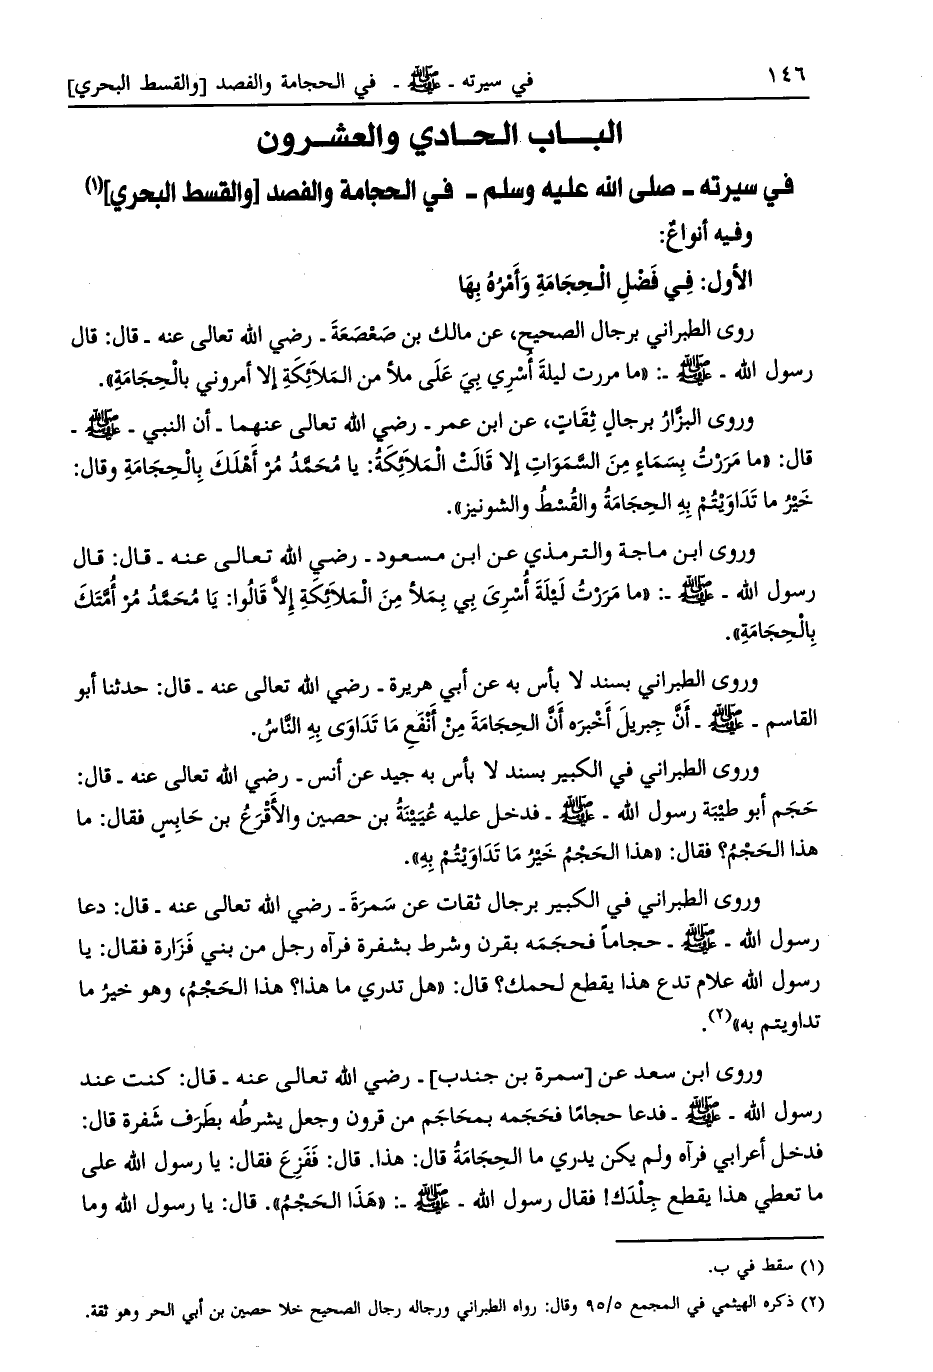 ١٤٦
في سيرته ـ ﷺ ـ في الحجامة والفصد [والقسط البحري]
البـاب الحـادي والعشـرون
في سيرته ـ صلى الله عليه وسلم ـ في الحجامة والفصد [والقسط البحري](١)
وفيه أنواعٌ:
الأول: فِي فَضْلِ الْحِجَامَةِ وَأَمْرُهُ بِهَا
روى الطبراني برجال الصحيح، عن مالك بن صَعْصَعَةَ ـ رضي الله تعالى عنه ـ قال: قال
رسول الله ـ ﷺ ـ: «ما مررت ليلةَ أُسْرِي بِيَ عَلَى ملأ من المَلَائِكَةِ إلا أمروني بالْحِجَامَةِ».
وروى البزَّارُ برجالٍ ثِقَاتٍ، عن ابن عمر ـ رضي الله تعالى عنهما ـ أن النبي ـ ﷺ ـ
قال: «ما مَرَرْتُ بِسَمَاءٍ مِنَ السَّمَوَاتِ إلا قَالَتْ الْمَلَائِكَةُ: يا مُحَمَّدُ مُرْ أَهْلَكَ بِالْحِجَامَةِ وقال:
خَيْرُ ما تَدَاوَيْتُمْ بِهِ الحِجامَةُ والقُسْطُ والشونيز».
وروى ابن ماجة والترمذي عن ابن مسعود ـ رضي الله تعالى عنه ـ قال: قال
رسول الله ـ ﷺ ـ: «ما مَرَرْتُ لَيْلَةَ أُسْرِىَ بِي بِمَلأ مِنَ الْمَلَائِكَةِ إِلاَّ قَالُوا: يَا مُحَمَّدُ مُرْ أُمَّتَكَ
بِالْحِجَامَةِ».
وروى الطبراني بسند لا بأس به عن أبي هريرة ـ رضي الله تعالى عنه ـ قال: حدثنا أبو
القاسم ـ ﷺ ـ أَنَّ جِبريلَ أَخْبرَه أَنَّ الحِجَامَةَ مِنْ أَنْفَعِ مَا تَدَاوَى بِهِ النَّاسُ.
وروى الطبراني في الكبير بسند لا بأس به جيد عن أنس ـ رضي الله تعالى عنه ـ قال:
حَجَم أبو طيْبَة رسول الله ـ ﷺ ـ فدخل عليه عُيَيْنَةُ بن حصين والأَقْرَعُ بن حَابِسٍ فقال: ما
هذا الحَجْمُ؟ فقال: «هذا الحَجْمُ خَيْرُ مَا تَدَاوَيْتُمْ بِهِ».
وروى الطبراني في الكبير برجال ثقات عن سَمرَةَ ـ رضي الله تعالى عنه ـ قال: دعا
رسول الله ـ ﷺ ـ حجاماً فحجَمَه بقرن وشرط بشفرة فرآه رجل من بني فَزَارة فقال: يا
رسول الله علام تدع هذا يقطع لحمك؟ قال: «هل تدري ما هذا؟ هذا الحَجْمُ، وهو خيرُ ما
تداويتم به»(٢).
وروى ابن سعد عن [سمرة بن جندب] ـ رضي الله تعالى عنه ـ قال: كنت عند
رسول الله ـ ﷺ ـ فدعا حجامًا فحَجَمه بمحَاجَم من قرون وجعل يشرطُه بطَرَف شَفرة قال:
فدخل أعرابي فرآه ولم يكن يدري ما الحِجَامَةُ قال: هذا. قال: فَفَزِعَ فقال: يا رسول الله على
ما تعطي هذا يقطع جِلْدَك! فقال رسول الله ـ ﷺ ـ: «هَذَا الحَجْمُ». قال: يا رسول الله وما
(١) سقط في ب.
(٢) ذكره الهيثمي في المجمع ٩٥/٥ وقال: رواه الطبراني ورجاله رجال الصحيح خلا حصين بن أبي الحر وهو ثقة.